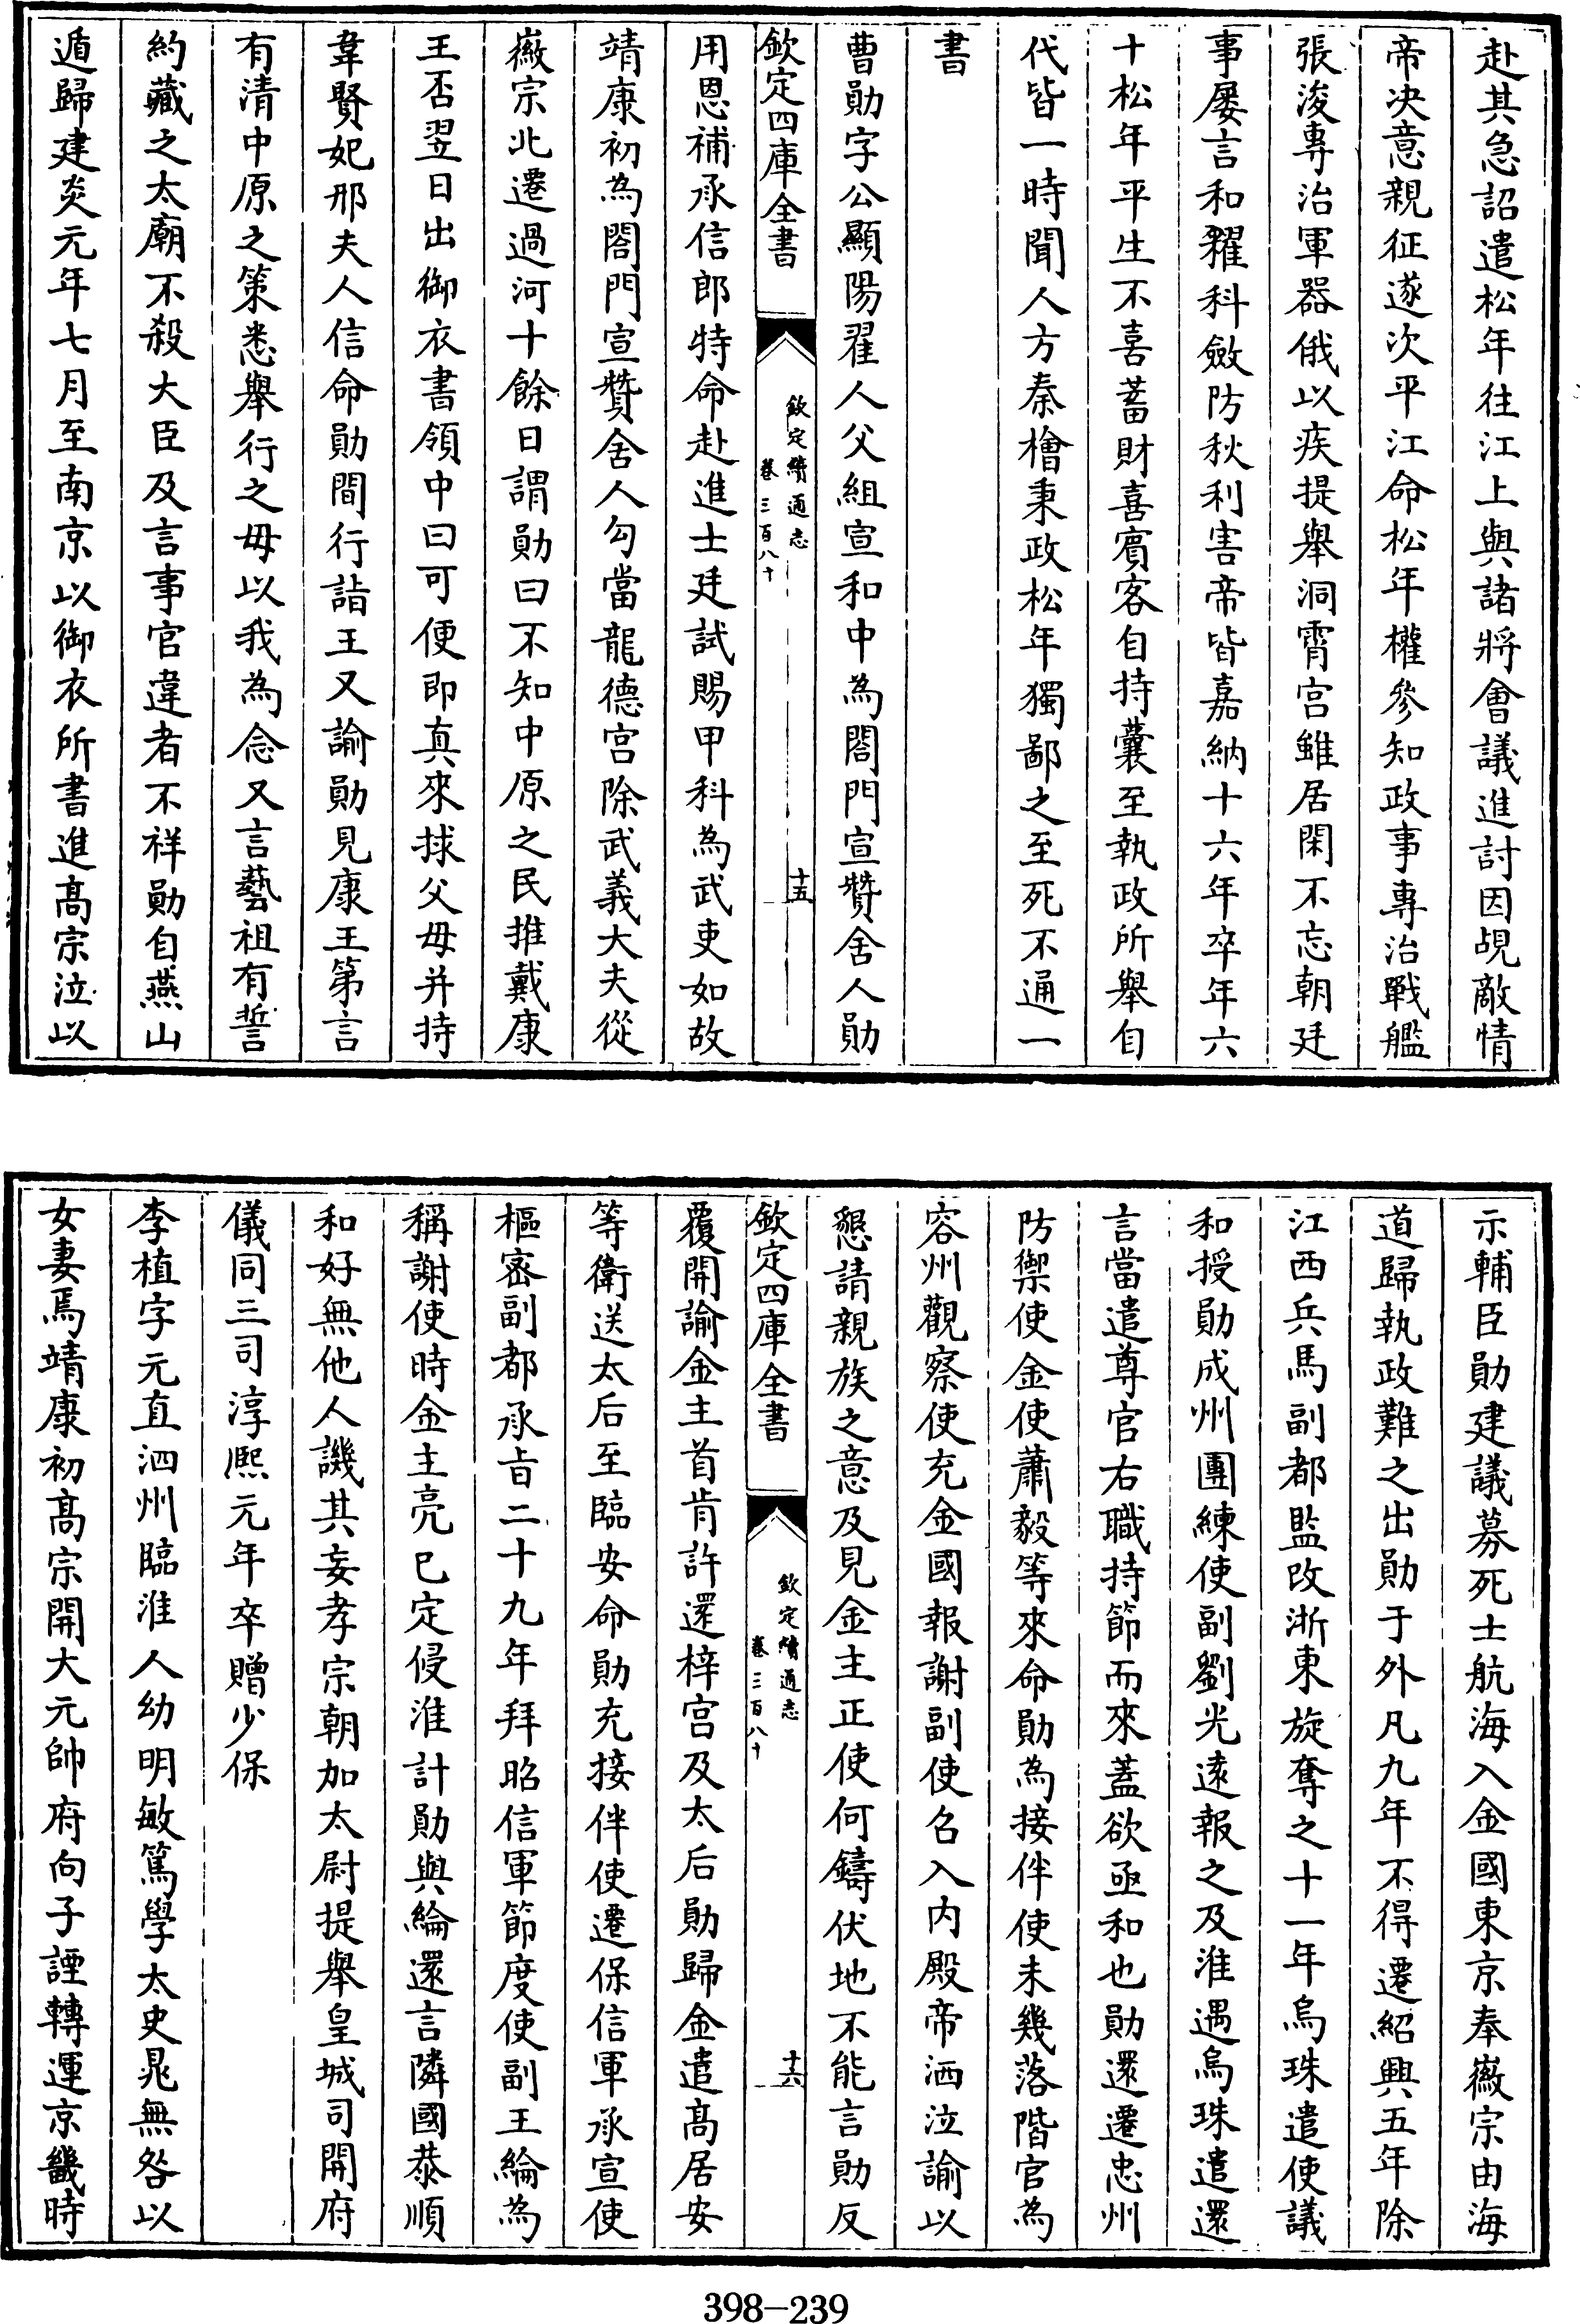 赴其急詔遣松年往江上與諸將會議進討因覘敵情
帝決意親征遂次平江命松年權參知政事專治戰艦
張浚專治軍器俄以疾提舉洞霄宮雖居閑不忘朝廷
事屡言和糴科斂防秋利害帝皆嘉納十六年卒年六
十松年平生不喜蓄財喜賓客自持囊至執政所舉自
代皆一時聞人方秦檜秉政松年獨鄙之至死不通一
書
曹勛字公顯陽翟人父組宣和中為閤門宣贊舍人勛
欽定四庫全書
欽定續通志
卷三百八十
十五
用恩補承信郎特命赴進士廷試賜甲科為武吏如故
靖康初為閤門宣贊舍人勾當龍德宮除武義大夫從
徽宗北遷過河十餘日謂勛曰不知中原之民推戴康
王否翌日出御衣書領中曰可便即真來捄父母并持
韋賢妃邢夫人信命勛間行詣王又諭勛見康王第言
有清中原之策悉舉行之毋以我為念又言藝祖有誓
約藏之太廟不殺大臣及言事官違者不祥勛自燕山
遁歸建炎元年七月至南京以御衣所書進高宗泣以
示輔臣勛建議募死士航海入金國東京奉徽宗由海
道歸執政難之出勛于外凡九年不得遷紹興五年除
江西兵馬副都監改浙東旋奪之十一年烏珠遣使議
和授勛成州團練使副劉光遠報之及淮遇烏珠遣還
言當遣尊官右職持節而來蓋欲亟和也勛還遷忠州
防禦使金使蕭毅等來命勛為接伴使未幾落階官為
容州觀察使充金國報謝副使召入內殿帝洒泣諭以
懇請親族之意及見金主正使何鑄伏地不能言勛反
欽定四庫全書
欽定續通志
卷三百八十
十六
覆開諭金主首肯許還梓宮及太后勛歸金遣高居安
等衛送太后至臨安命勛充接伴使遷保信軍承宣使
樞密副都承旨二十九年拜昭信軍節度使副王綸為
稱謝使時金主亮已定侵淮計勛與綸還言隣國恭順
和好無他人譏其妄孝宗朝加太尉提舉皇城司開府
儀同三司淳熙元年卒贈少保
李植字元直泗州臨淮人幼明敏篤學太史晁無咎以
女妻焉靖康初高宗開大元帥府向子諲轉運京畿時
398-239